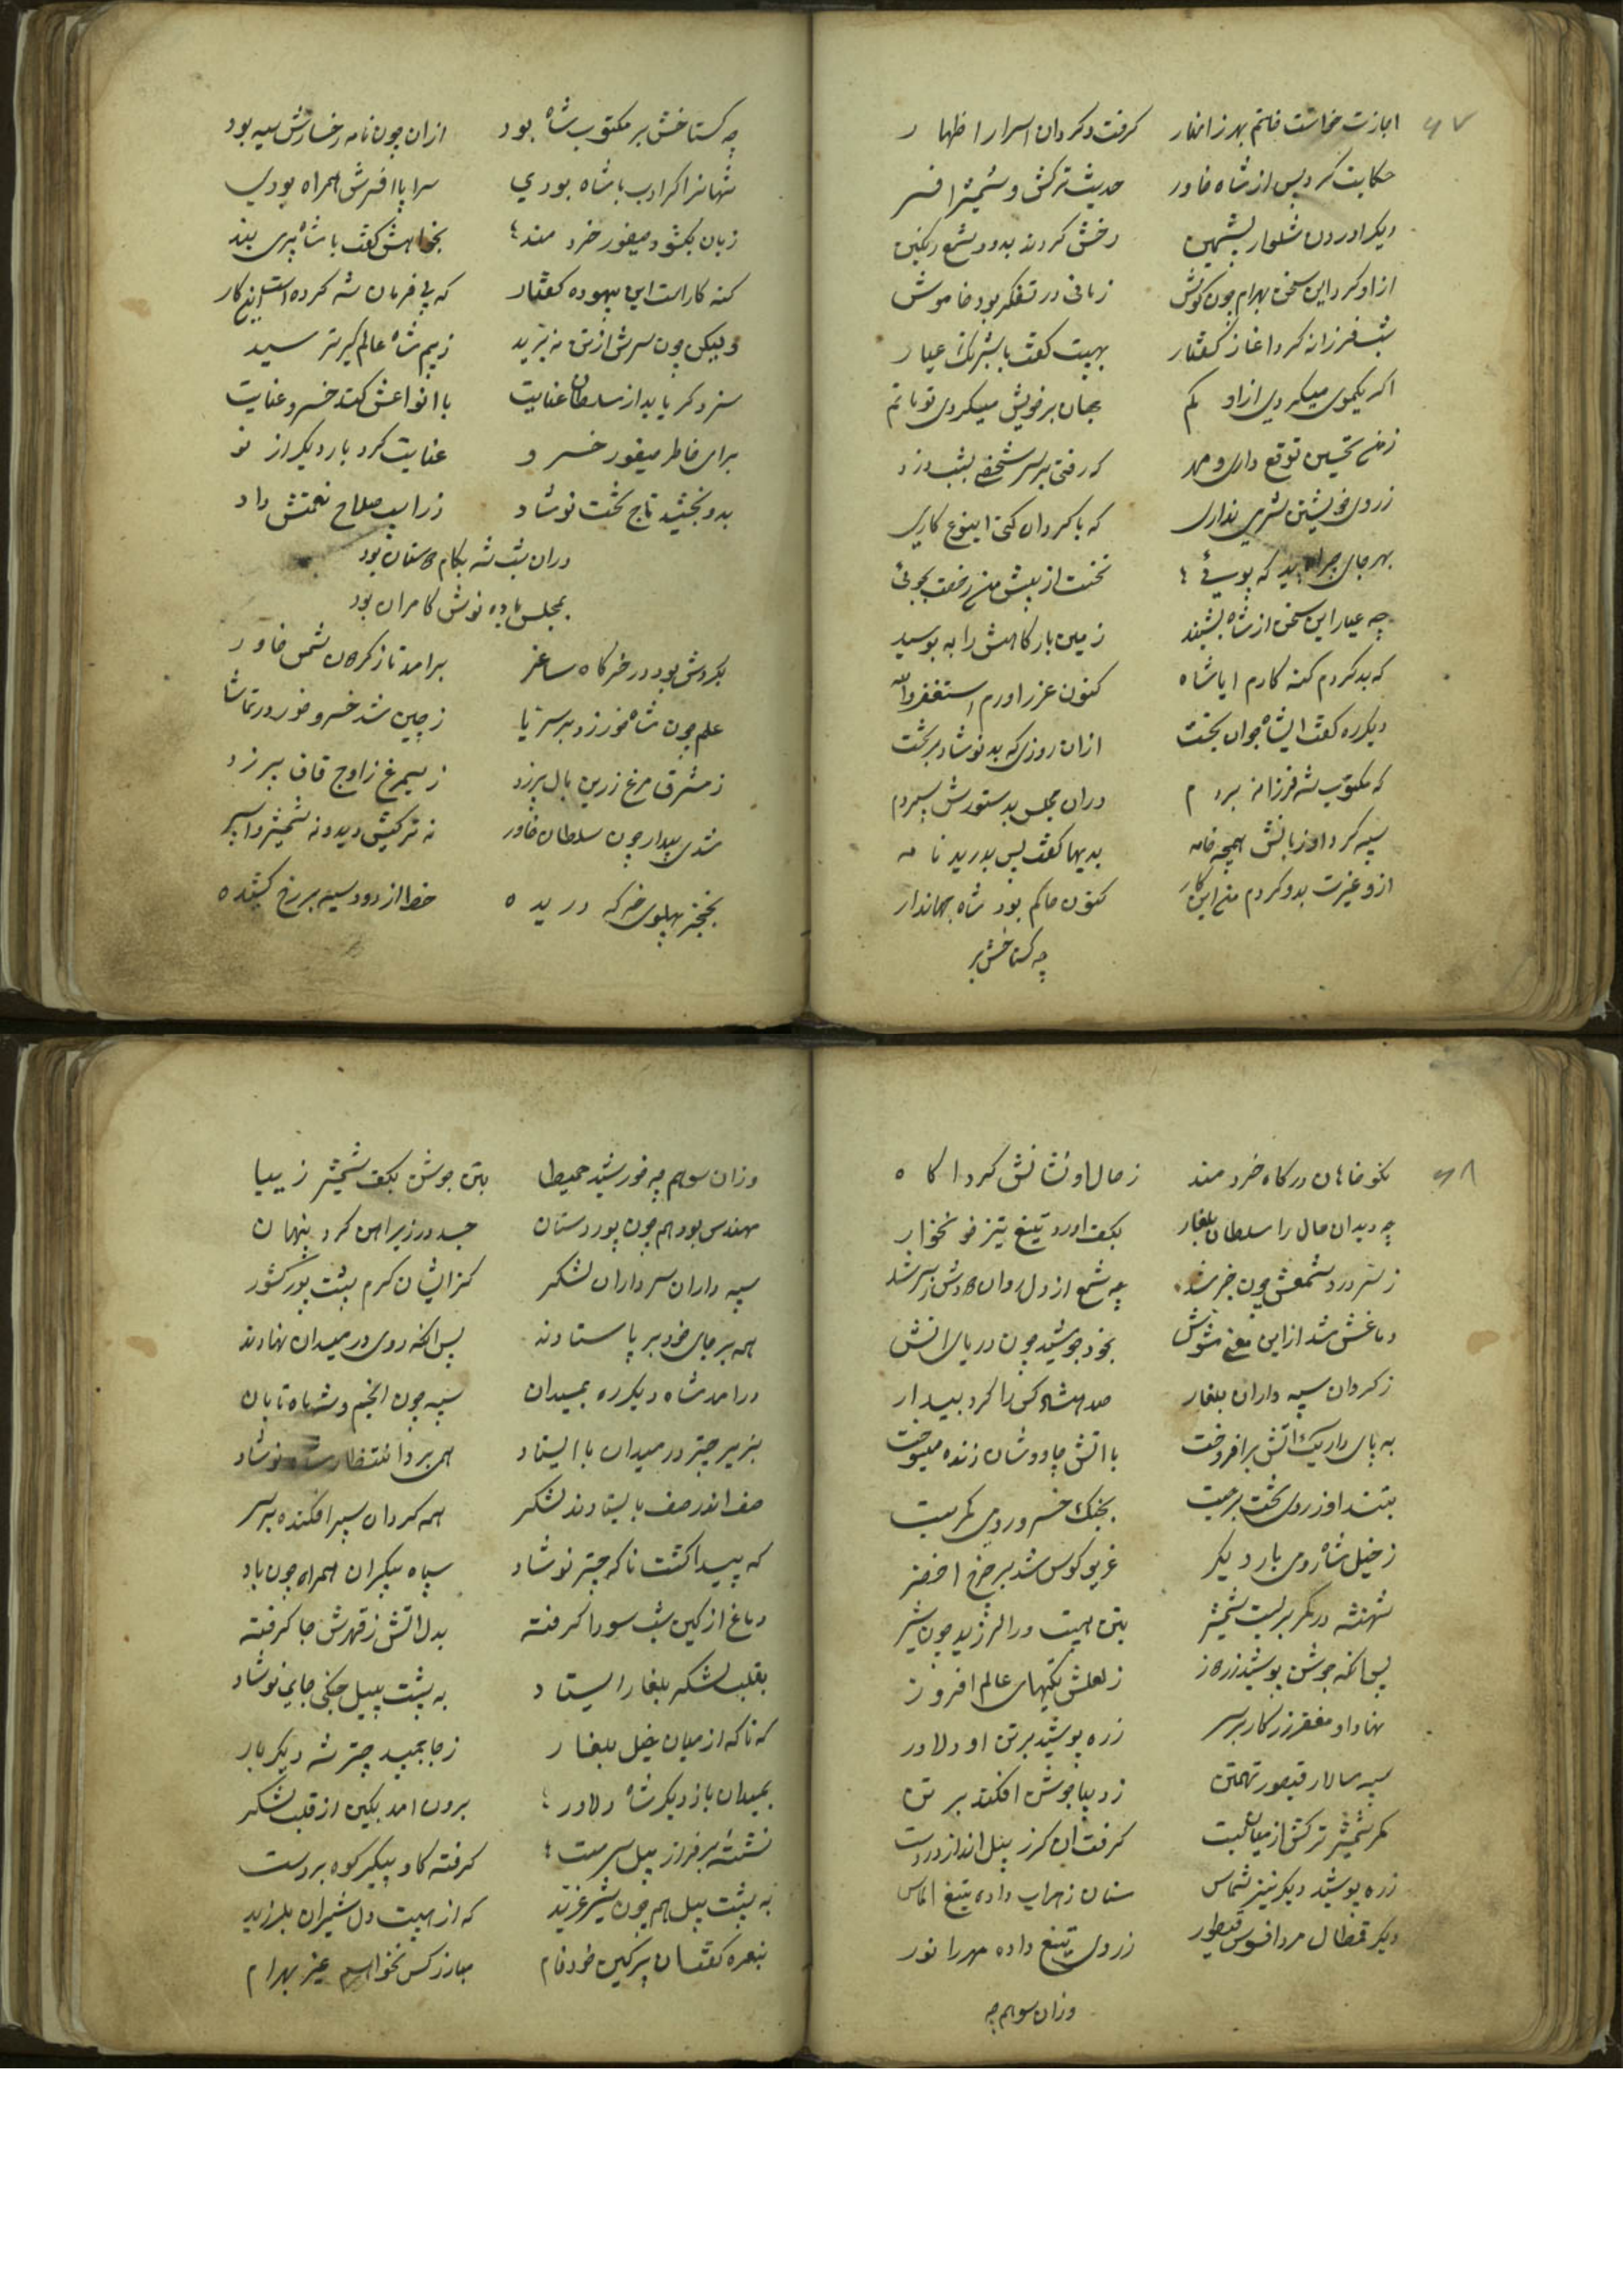 ۶۷
اجازت خواست خانم بهر زانغار کرفت و کردان اسرار اظهار
حکایت کرد پس از شاه خاور حدیث ترکش و شمشیر افسر
دیکر اوردن شلوار پشمین رخش کردند بدود شمع رنکین
ازاو کرد این سخن بهرام چون کوش زمانی در تفکر بود خاموش
شب فرزانه کرد اغاز کفتار بهیبت کفت با شبرنک عیار
اکر یکموی میکردی ازاو کم بجان برخویش میکردی تو ماتم
زمن تحسین توقع داری و مهد که رفتی بر سر شخصی بشب دزد
زروی خویشتن شرمی نداری که با کردان کنی اینوع کاری
بهر جای چرا باید که پوئی نخست از پیش من رخصت بجوئی
چه عیار این سخن از شاه بشنید زمین بارکاهش را به بوسید
که بد کردم کنه کارم ایا شاه کنون عزر اورم استغفرالله
دیکرره کفت ایشاه جوان بخت ازان روزی که بد نوشاد بر تخت
که مکتوب شه فرزانه بردم دران مجلس بدستورش سپردم
سیه کرد او زبانش همچه خامه بدیها کفت پس بدرید نامه
ازو غیرت بدو کردم من این کار کنون حاکم بود شاه جهاندار
چه کستاخش بر
چه کستاخش بر مکتوب شاه بود ازان چون نامه رخسارش سیه بود
شهانرا کر ادب با شاه بودی سراپا افسرش همراه بودی
زبان بکشود میفور خردمند بخواهش کفت با شاه پری بند
کنه کار است این بیهوده کفتار که بی فرمان شه کرده است این کار
ولیکن چون سرش از تن نه ببرید زبیم شاه عالم کیر ترسید
سزد کر یابد از سلطان عنایت با انواعش کند خسرو عنایت
برای خاطر میفور خسرو عنایت کرد بار دیکر از نو
بدو بخشید تاج تخت نوشاد زراسب صلاح نعمتش داد
دران شب شه بکام دوستان بود
بمجلس باده نوش کامران بود
بکردش بود در خرکاه ساغر برامد تاز کردان شمس خاور
علم چون شاه خور زد بر سر یا زچین شد خسرو خور در تماشا
زمشرق مرغ زرین بال پر زد زسیمرغ زاوج قاف سر زد
شدی بیدار چون سلطان خاور نه ترکش دید و نه شمشیر و اسپر
بخنجر پهلوی خرکه دریده خط از دود سیه بر رخ کشیده
۶۸
نکوخاهان درکاه خردمند زحال او نشانش کرد اکاه
چه دید ان حال را سلطان بلغار بکف اورد تیغ تیز خونخوار
زسر درد شمعش چون خبر شد چه شمع از دل روان دودش بسر شد
دماغش شد از این معنی مشوش بخود جوشید چون دریای اتش
زکردان سپه داران بلغار صد و هشتاد کس را کرد بیدار
به پای دار یک اتش برافروخت با اتش چاووشان زنده میسوخت
بتند او زروی تخت برجست بجنک خسرو رومی کمر بست
زخیل شاه رومی بار دیکر غریو کوس شد بر چرخ اخضر
شهنشه در کمر بربست شمشیر بتن هیبت در الرزید چون شیر
پس انکه جوشن پوشید زره از زلعلش تکمهای عالم افروز
نهاد او مغفر زرکار بر سر زره پوشید بر تن او دلاور
سپه سالار قیصور تهمتن زدیبا جوشن افکند بر تن
کمر شمشیر ترکش از میان بست کرفت ان کرز پیل انداز در دست
زره پوشید دیکر نیز شماس سنان زهراب داده تیغ الماس
دیکر قمطال مرد افسوس قیطور زروی تیغ داده مهر را نور
وزان سو هم چه
وزان سو هم چه خورشید حمیطا بتن جوشن بکف شمشیر زیبا
مهندس بود هم چون پور دستان جسد در زیر اهن کرد پنهان
سپه داران سرداران لشکر کز ایشان کرم پشت پور کشور
همه بر جای خود بر پا ستادند پس انکه روی در میدان نهادند
درامد شاه دیکرره بمیدان سپه چون انجم و شه ماه تابان
بزیر چتر در میدان با ایستاد همی برد انتظار شاه نوشاد
صف اندر صف بایستادند لشکر همه کردان سپر افکنده بر سر
که پیدا کشت ناکه چتر نوشاد سپاه بیکران همراه چون باد
دماغ از کین شب سودا کرفته بدل اتش زقهرش جا کرفته
بقلب لشکر بلغار ایستاد به پشت پیل جنکی جای نوشاد
که ناکه از میان خیل بلغار زجا جنبید چتر شه دیکر بار
بمیدان باز دیکر شاه دلاور برون امد بکین از قلب لشکر
نشسته بر فراز پیل سرمست کرفته کاو پیکر کوه بر دست
به پشت پیل هم چون شیر غرید که از هیبت دل شیران بلرزید
بنعره کفت ان پر کین خود خام مبارز کس نخواهم غیر بهرام